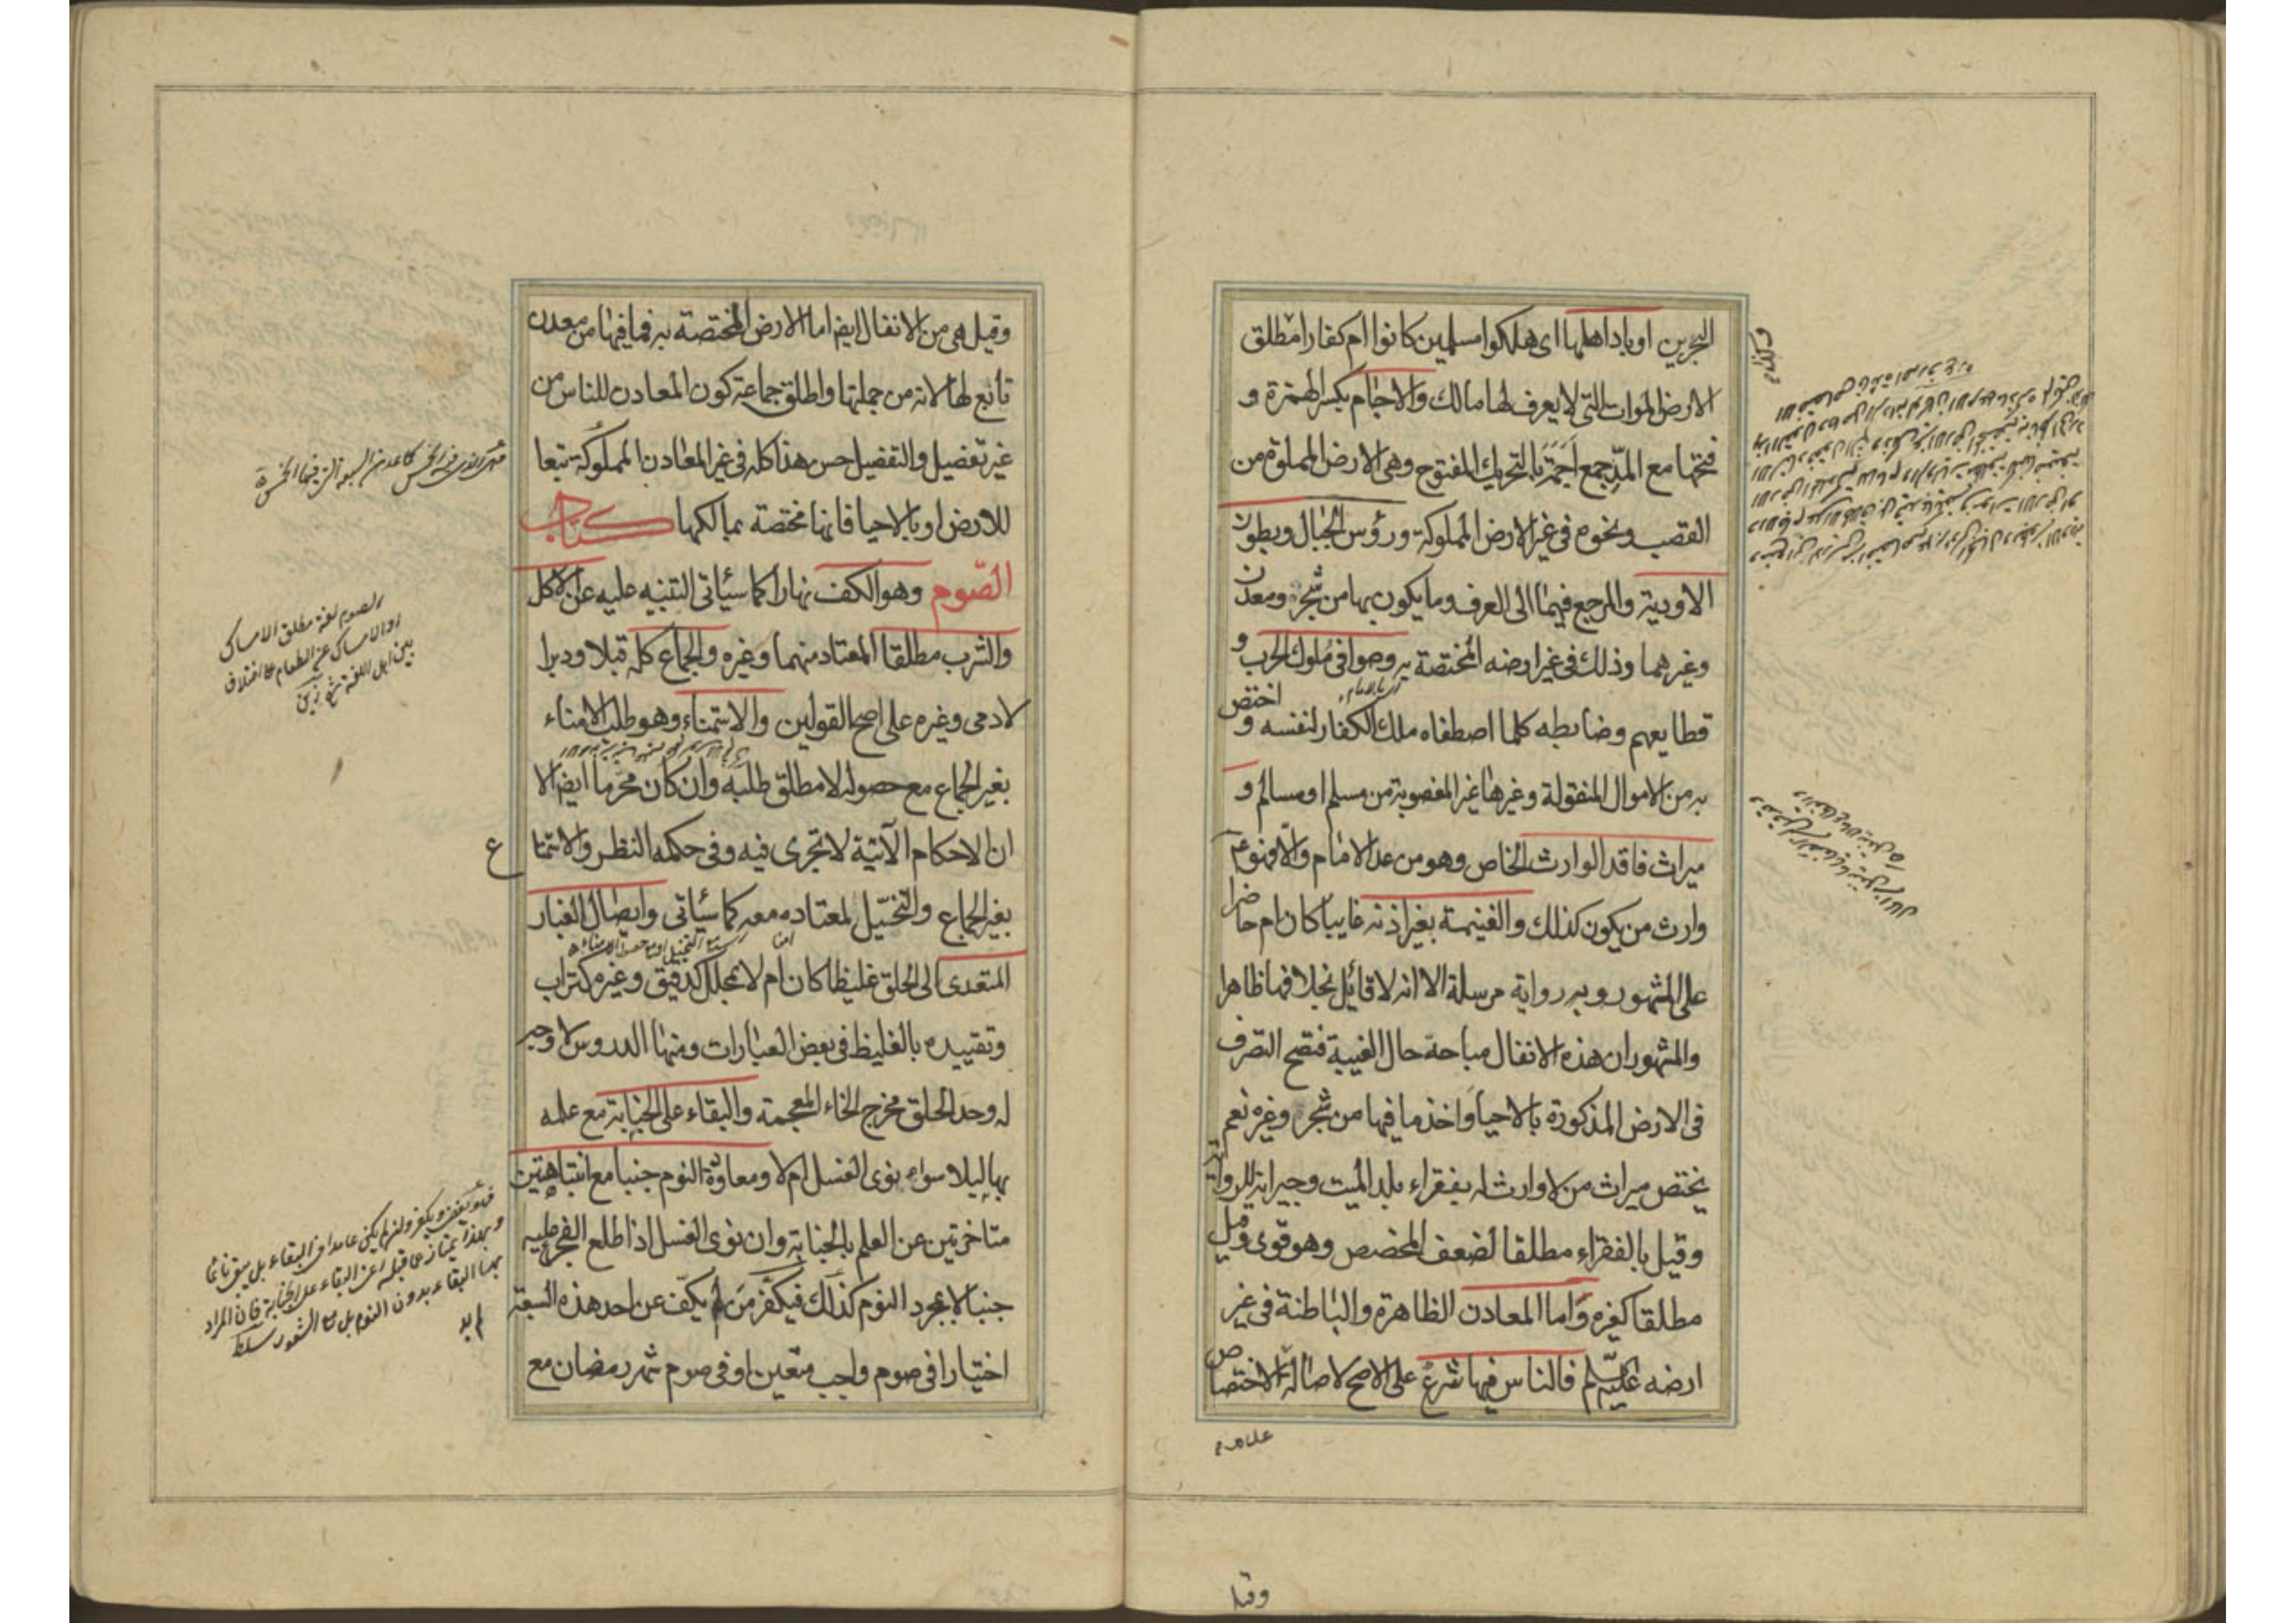 البحرين او باد اهلها اى هلكوا مسلمين كانوا ام كفارا مطلق
الارض الموات التى لا يعرف لها مالك والاجام بكسر الهمزة و
فتحها مع المد جمع اجمة بالتحريك المفتوح وهى الارض المملوة من
القصب ونحوه فى غير الارض المملوكة ورؤس الجبال وبطون
الاودية والمرجع فيهما الى العرف وما يكون بها من شجر ومعدن
وغيرهما وذلك فى غير ارضه المختصة به وصوافى ملوك الحرب و
قطايعهم وضابطه كلما اصطفاه ملك الكفار لنفسه و اختص
به من الاموال المنقولة وغيرها غير المغصوبة من مسلم او مسالم و
ميراث فاقد الوارث الخاص وهو من عدا الامام والا فهو ع
وارث من يكون كذلك والغنيمة بغير اذنه غايبا كان ام حاضرا
على المشهور وبه رواية مرسلة الا انه لا قائل بخلافها ظاهرا
والمشهور ان هذه الانفال مباحة حال الغيبة فتصح التصرف
فى الارض المذكورة بالاحيا واخذ ما فيها من شجر وغيره نعم
يختص ميراث من لا وارث له بفقراء بلد الميت وجيرانه للرواية
وقيل بالفقراء مطلقا لضعف المخصص وهو قوى وقيل
مطلقا كغيره واما المعادن الظاهرة والباطنة فى غير
ارضه عليه السلم فالناس فيها شرع على الاصح لاصالة الاختصاص
وقيل
وقيل هى من الانفال ايضا اما الارض المختصة به فما فيها من معدن
تابع لها لانه من جملتها واطلق جماعة كون المعادن للناس من
غير تفصيل والتفصيل حسن هذا كله فى غير المعادن المملوكة تبعا
للارض او بالاحيا فانها مختصة بمالكها كتاب
الصوم وهو الكف نهارا كما سيأتى التنبيه عليه عن الاكل
والشرب مطلقا المعتاد منهما وغيره والجماع كله قبلا ودبرا
لادمى وغيره على اصح القولين والاستمناء وهو طلب الامناء
بغير الجماع مع حصوله لا مطلق طلبه وان كان محرما ايضا الا
ان الاحكام الآتية لا تجرى فيه وفى حكمه النظر والاستمتاع
بغير الجماع والتخيل لمعتاده معه كما سيأتى وايصال الغبار
المتعدى الى الحلق غليظا كان ام لا بمحلل كدقيق وغيره كتراب
وتقييده بالغليظ فى بعض العبارات ومنها الدروس لا وجه
له وحد الحلق مخرج الخاء المعجمة والبقاء على الجنابة مع علمه
بها ليلا سواء نوى الغسل ام لا ومعاودة النوم جنبا مع انتباهتين
متاخرتين عن العلم بالجنابة وان نوى الغسل اذا طلع الفجر عليه
جنبا لا بمجرد النوم كذلك فيكفر من لم يكف عن احد هذه السبعة
اختيارا فى صوم واجب متعين او فى صوم شهر رمضان مع
الصوم لغة مطلق الامساك
او الامساك عن الطعام على اختلاف
بين اهل اللغة